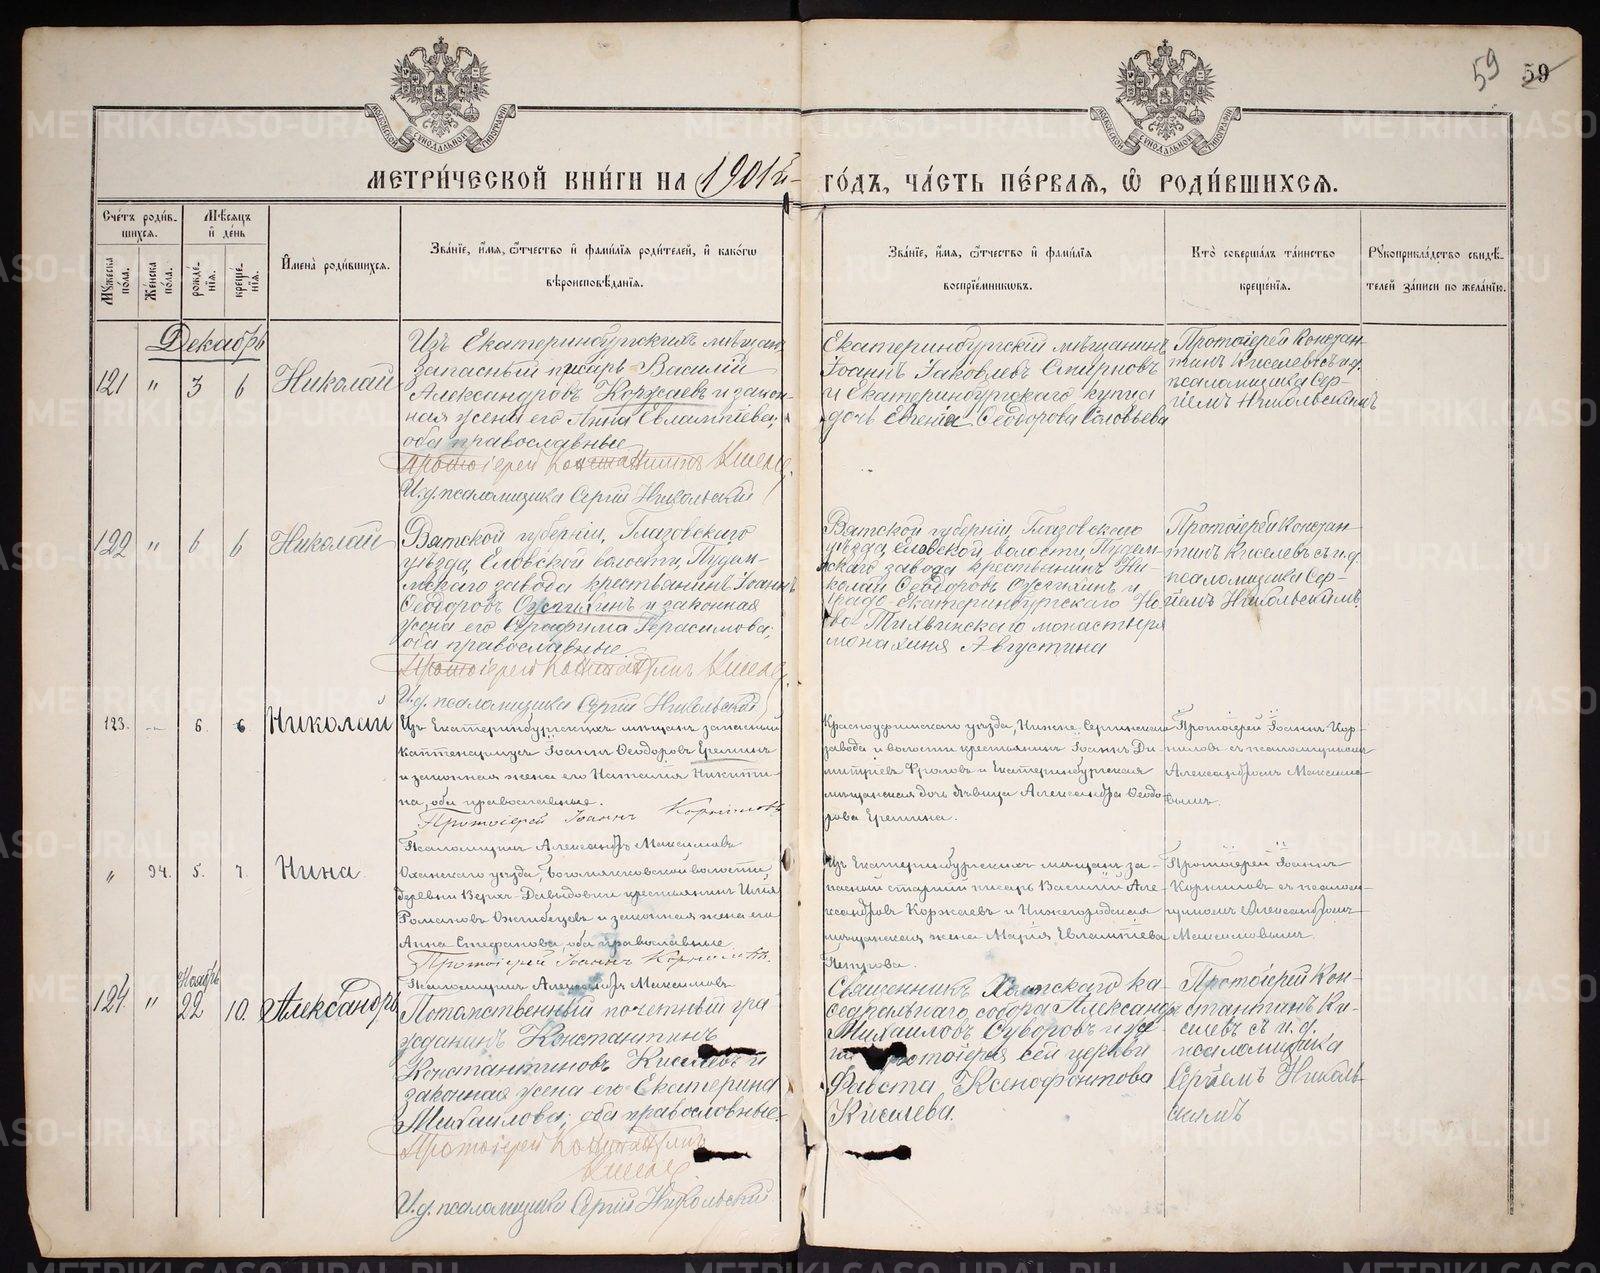 59 59
МЕТРИ́ЧЕСКОЙ КНИ́ГИ НА 1901й ГО́ДЪ, ЧА́СТЬ ПЕ́РВАѦ, Ѿ РОДИ́ВШИХСѦ.
Сче́тъ роди́в-
шихся.
Мѣсяцъ
и҆ де́нь
Му́жеска по́ла.
Же́нска по́ла.
рожде́-
нїя.
креще́-
нїя.
И҆мена̀ роди́вшихся.
Зва́нїе, и҆́мя, ѻ҆́тчество и҆ фами́лїя роди́телей, и҆ како́гѡ
вѣроисповѣ́данїя.
Зва́нїе, и҆́мя, ѻ҆́тчество и҆ фами́лїя
воспрїе́мникѡвъ.
Кто̀ соверша́лъ та́инство
креще́нїя.
Рукоприкла́дство свидѣ́-
телей за́писи по жела́нїю.
Декабрь
121 " 3 6 Николай
Изъ Екатеринбургскихъ мѣщанъ
запасный писарь Василій
Александровъ Коржаевъ и закон-
ная жена его Анна Евлампіева,
оба православные
Протоіерей Константинъ Киселевъ
И.д. псаломщика Сергій Никольскій
Екатеринбургскій мѣщанинъ
Іоаннъ Іаковлевъ Смирновъ
и Екатеринбургскаго купца
дочь Евгенія Ѳеодорова Соловьева
Протоіерей Констан-
тинъ Киселевъ съ и.д.
псаломщика Сер-
гіемъ Никольскимъ
122 " 6 6 Николай
Вятской губерніи, Глазовскаго
уѣзда, Еловской волости, Пудем-
скаго завода крестьянинъ Іоаннъ
Ѳеодоровъ и законная
жена его Серафима Герасимова,
оба православные
Протоіерей Константинъ Киселевъ
И.д. псаломщика Сергій Никольскій
Вятской губерніи, Глазовскаго
уѣзда, Еловской волости, Пудем-
скаго завода крестьянинъ Ни-
колай Ѳеодоровъ и
градо-Екатеринбургскаго Но-
во-Тихвинскаго монастыря
монахиня Августина
Протоіерей Констан-
тинъ Киселевъ съ и.д.
псаломщика Сер-
гіемъ Никольскимъ
123. — 6. 6 Николай
Изъ Екатеринбургскихъ мѣщанъ запасный
каптенармусъ Іоаннъ Ѳеодоровъ Ереминъ
и законная жена его Наталія Никити-
на, оба православные.
Протоіерей Іоаннъ Корниловъ
Псаломщикъ Александръ Максимовъ
Красноуфимскаго уѣзда, Нижне-Сергинскаго
завода и волости крестьянинъ Іоаннъ Ди-
митріевъ Фроловъ и Екатеринбургская
мѣщанская дочь дѣвица Александра Ѳеодо-
рова Еремина.
Протоіерей Іоаннъ Кор-
ниловъ съ псаломщикомъ
Александромъ Максимо-
вымъ.
" 94. 5. 7. Нина
Оханскаго уѣзда, Богомягковской волости,
деревни Верхъ-Давыдовки крестьянинъ Илія
Романовъ Ожгибцевъ и законная жена его
Анна Стефанова, оба православные.
Протоіерей Іоаннъ Корниловъ.
Псаломщикъ Александръ Максимовъ
Изъ Екатеринбургскихъ мѣщанъ за-
пасный старшій писарь Василій Але-
ксандровъ Коржаевъ и Нижегородская
мѣщанская жена Марія Евлампіева
Петрова
Протоіерей Іоаннъ
Корниловъ съ псалом-
щикомъ Александромъ
Максимовымъ
Ноябрь
124 " 22 10. Александръ
Потомственный почетный гра-
жданинъ Константинъ
Константиновъ Киселевъ и
законная жена его Екатерина
Михаилова, оба православные.
Протоіерей Константинъ
Киселевъ
И.д. псаломщика Сергій Никольскій
Священникъ ка-
ѳедральнаго собора Александръ
Михаиловъ Суворовъ и же-
на протоіерея сей церкви
Фавста Ксенофонтова
Киселева.
Протоіерей Кон-
стантинъ Ки-
селевъ съ и.д.
псаломщика
Сергіемъ Николь-
скимъ
METRIKI.GASO-URAL.RU